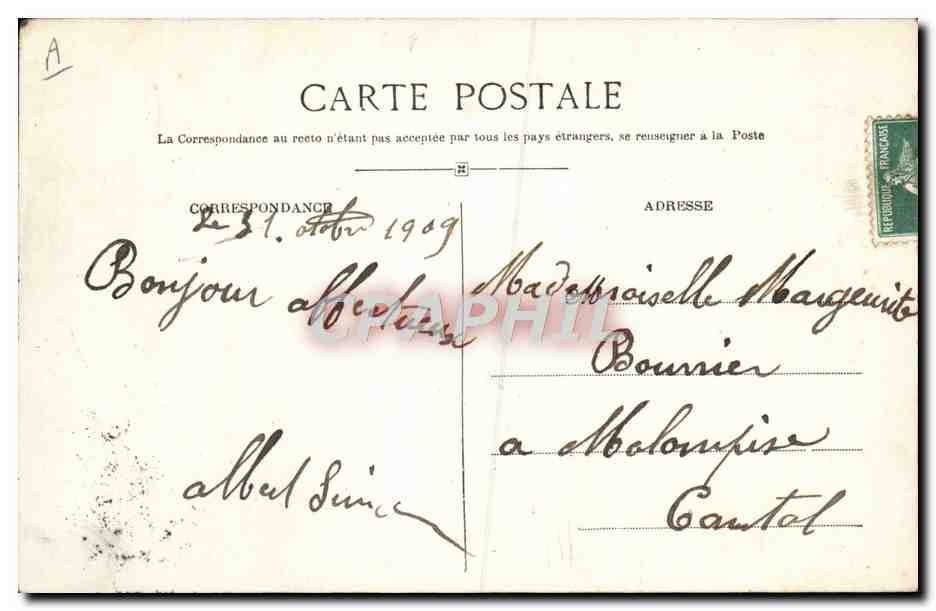 A
CARTE POSTALE
La Correspondance au recto n'étant pas acceptée par tous les pays étrangers, se renseigner à la Poste
CORRESPONDANCE
Le 31. octobre 1909
Bonjour affectueux
Albert
ADRESSE
Mademoiselle Margeurite
Bournier
a Molompise
Cantal
REPUBLIQUE FRANÇAISE
CPAPHIL